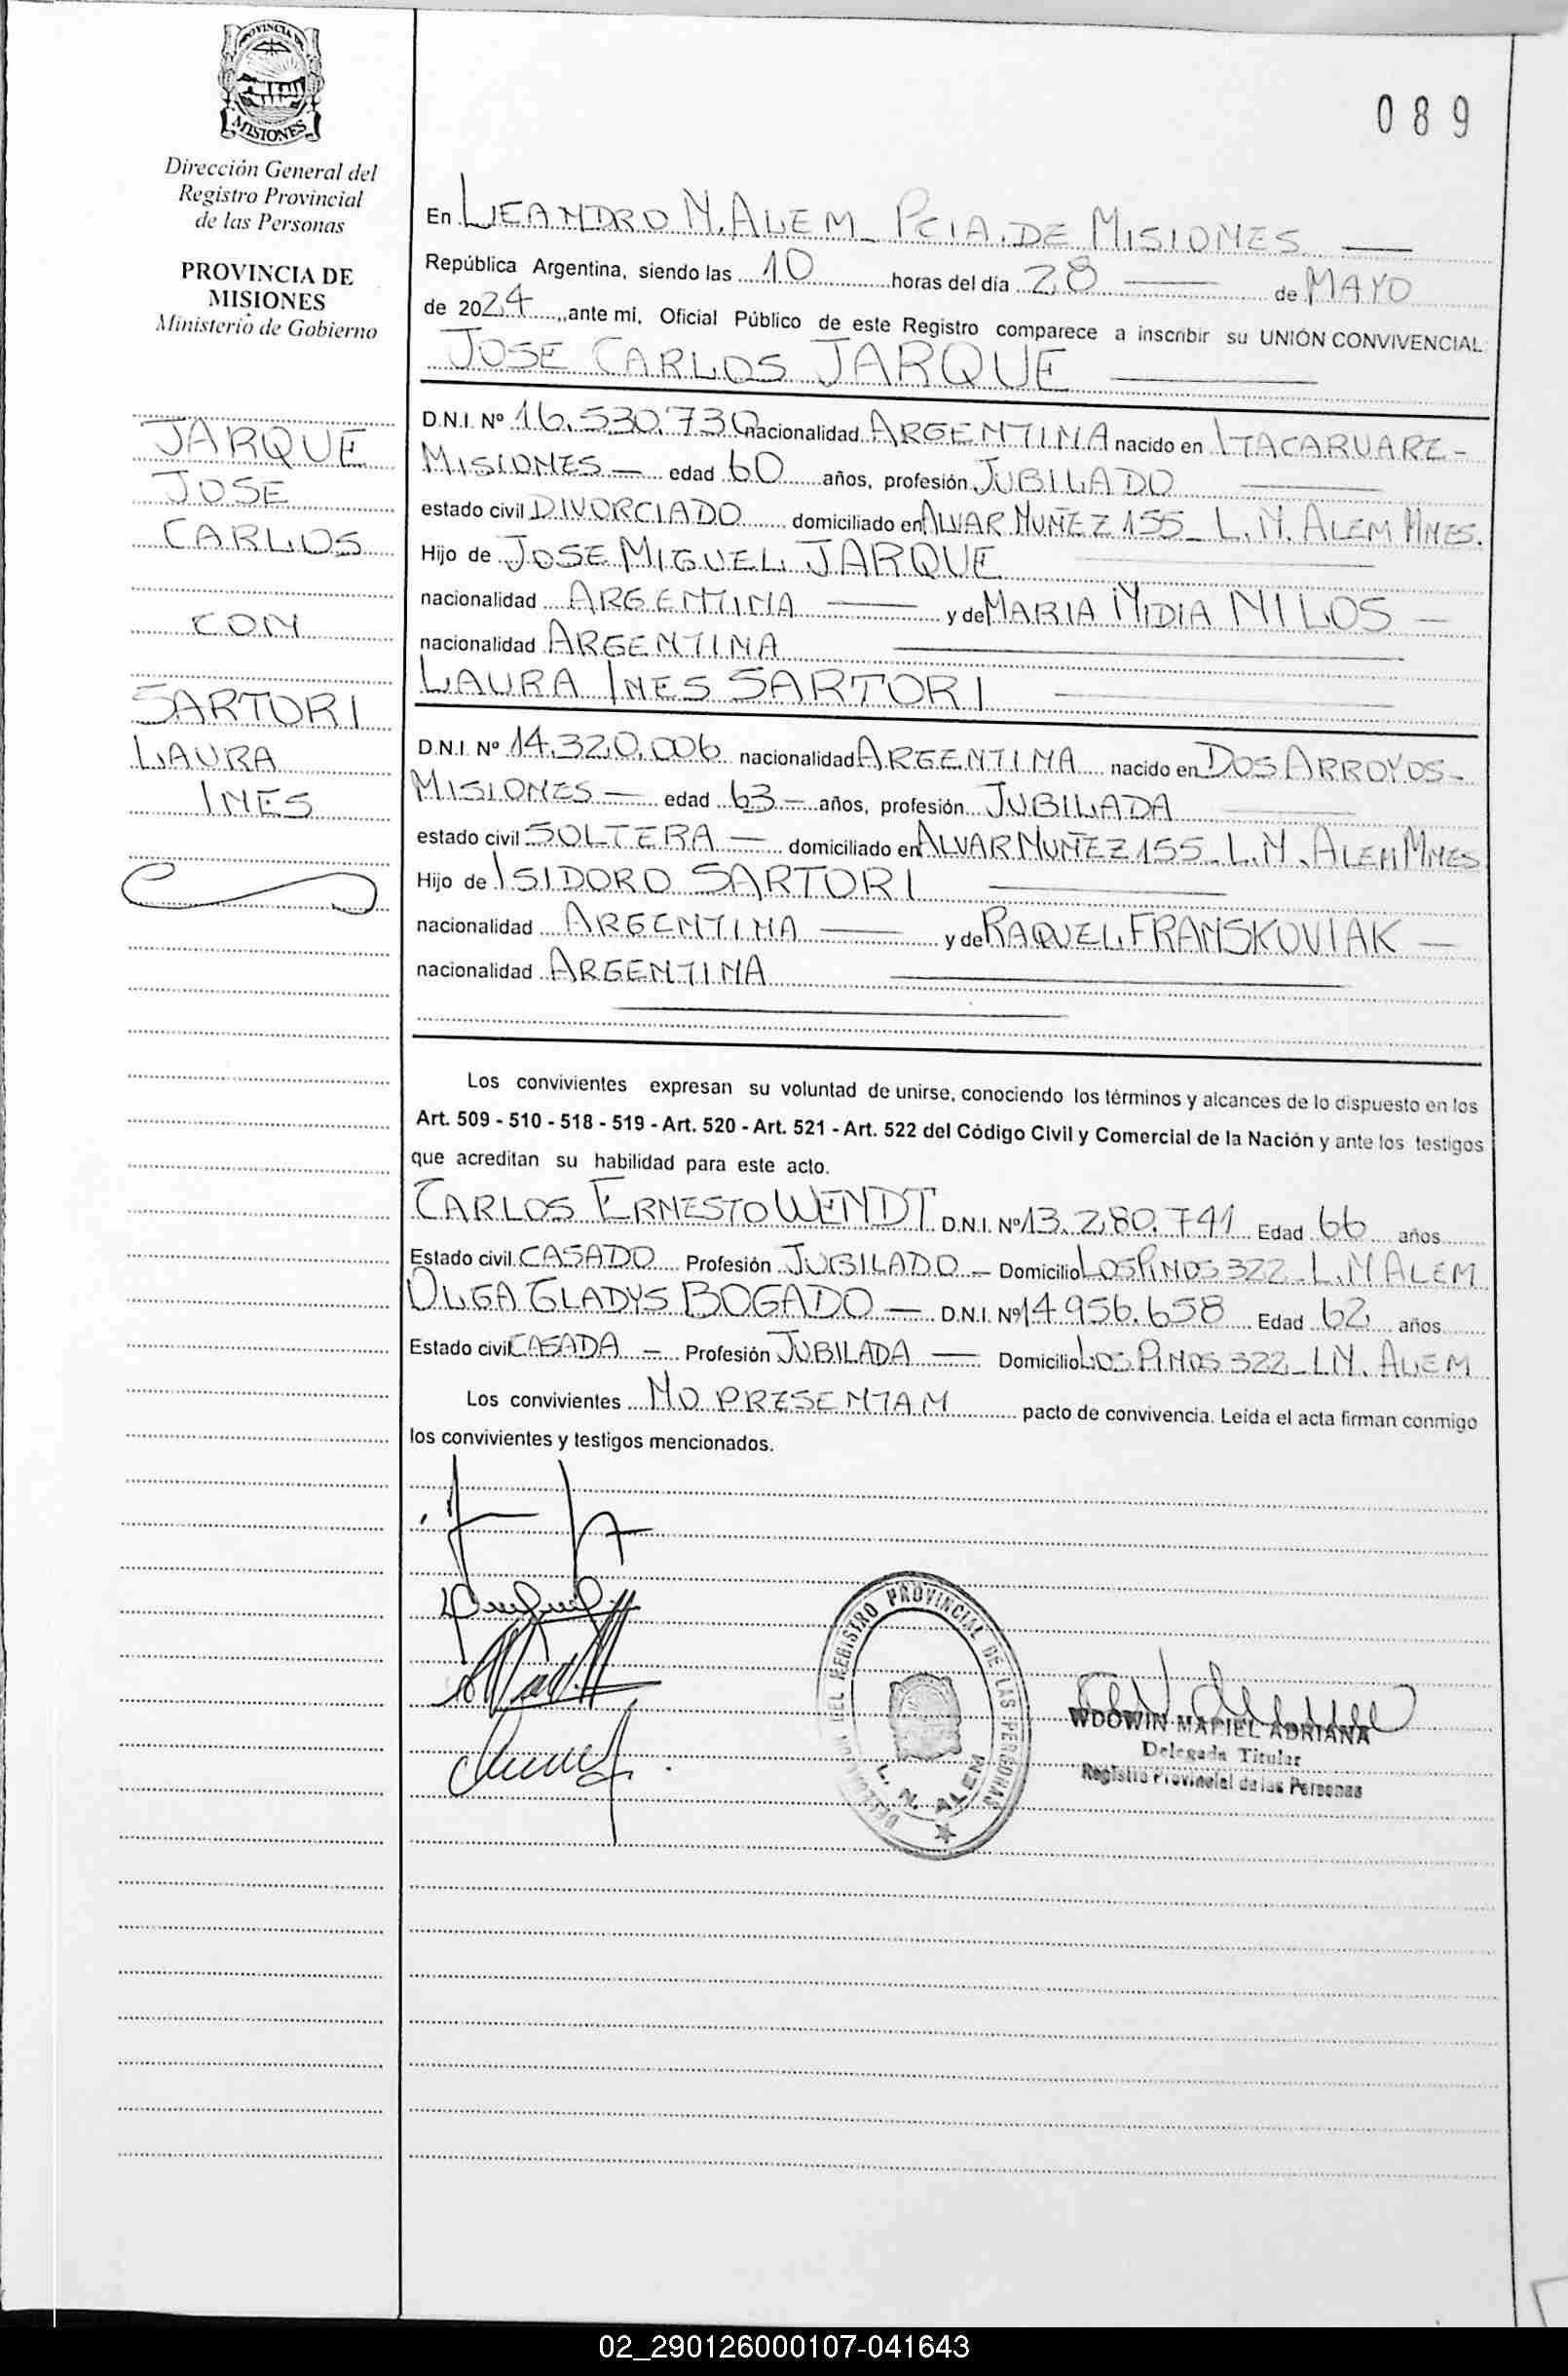 PROVINCIA DE
MISIONES
Dirección General del
Registro Provincial
de las Personas
PROVINCIA DE
MISIONES
Ministerio de Gobierno
JARQUE
JOSE
CARLOS
CON
SARTORI
LAURA
INES
089
En LEANDRO N. ALEM_ PCIA. DE MISIONES
República Argentina, siendo las 10 horas del día 28 de MAYO
de 2024, ante mi, Oficial Público de este Registro comparece a inscribir su UNIÓN CONVIVENCIAL
JOSE CARLOS JARQUE
D.N.I. Nº 16.530.730 nacionalidad ARGENTINA nacido en ITACARUARE-
MISIONES - edad 60 años, profesión JUBILADO
estado civil DIVORCIADO domiciliado en ALVAR NUÑEZ 155_ L.N. ALEM MNES.
Hijo de JOSE MIGUEL JARQUE
nacionalidad ARGENTINA y de MARIA NIDIA MILOS -
nacionalidad ARGENTINA
LAURA INES SARTORI
D.N.I. Nº 14.320.006 nacionalidad ARGENTINA nacido en DOS ARROYOS-
MISIONES - edad 63 - años, profesión JUBILADA
estado civil SOLTERA - domiciliado en ALVAR NUÑEZ 155_ L.N. ALEM MNES
Hijo de ISIDORO SARTORI
nacionalidad ARGENTINA y de RAQUEL FRANSKOVIAK -
nacionalidad ARGENTINA
Los convivientes expresan su voluntad de unirse, conociendo los términos y alcances de lo dispuesto en los
Art. 509 - 510 - 518 - 519 - Art. 520 - Art. 521 - Art. 522 del Código Civil y Comercial de la Nación y ante los testigos
que acreditan su habilidad para este acto.
CARLOS ERNESTO WENDT D.N.I. Nº 13.280.741 Edad 66 años
Estado civil CASADO Profesión JUBILADO - Domicilio LOS PINOS 322_ L.N ALEM
OLGA GLADYS BOGADO - D.N.I. Nº 14956.658 Edad 62 años
Estado civil CASADA - Profesión JUBILADA - Domicilio LOS PINOS 322_ L.N. ALEM
Los convivientes NO PRESENTAN pacto de convivencia. Leída el acta firman conmigo
los convivientes y testigos mencionados.
DEL REGISTRO PROVINCIAL DE LAS PERSONAS
L. N. ALEM
WDOWIN MARIEL ADRIANA
Delegada Titular
Registro Provincial de las Personas
02_290126000107-041643